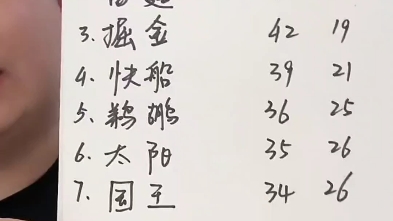 3. 掘金 42 19
4. 快船 39 21
5. 鹈鹕 36 25
6. 太阳 35 26
7. 国王 34 26